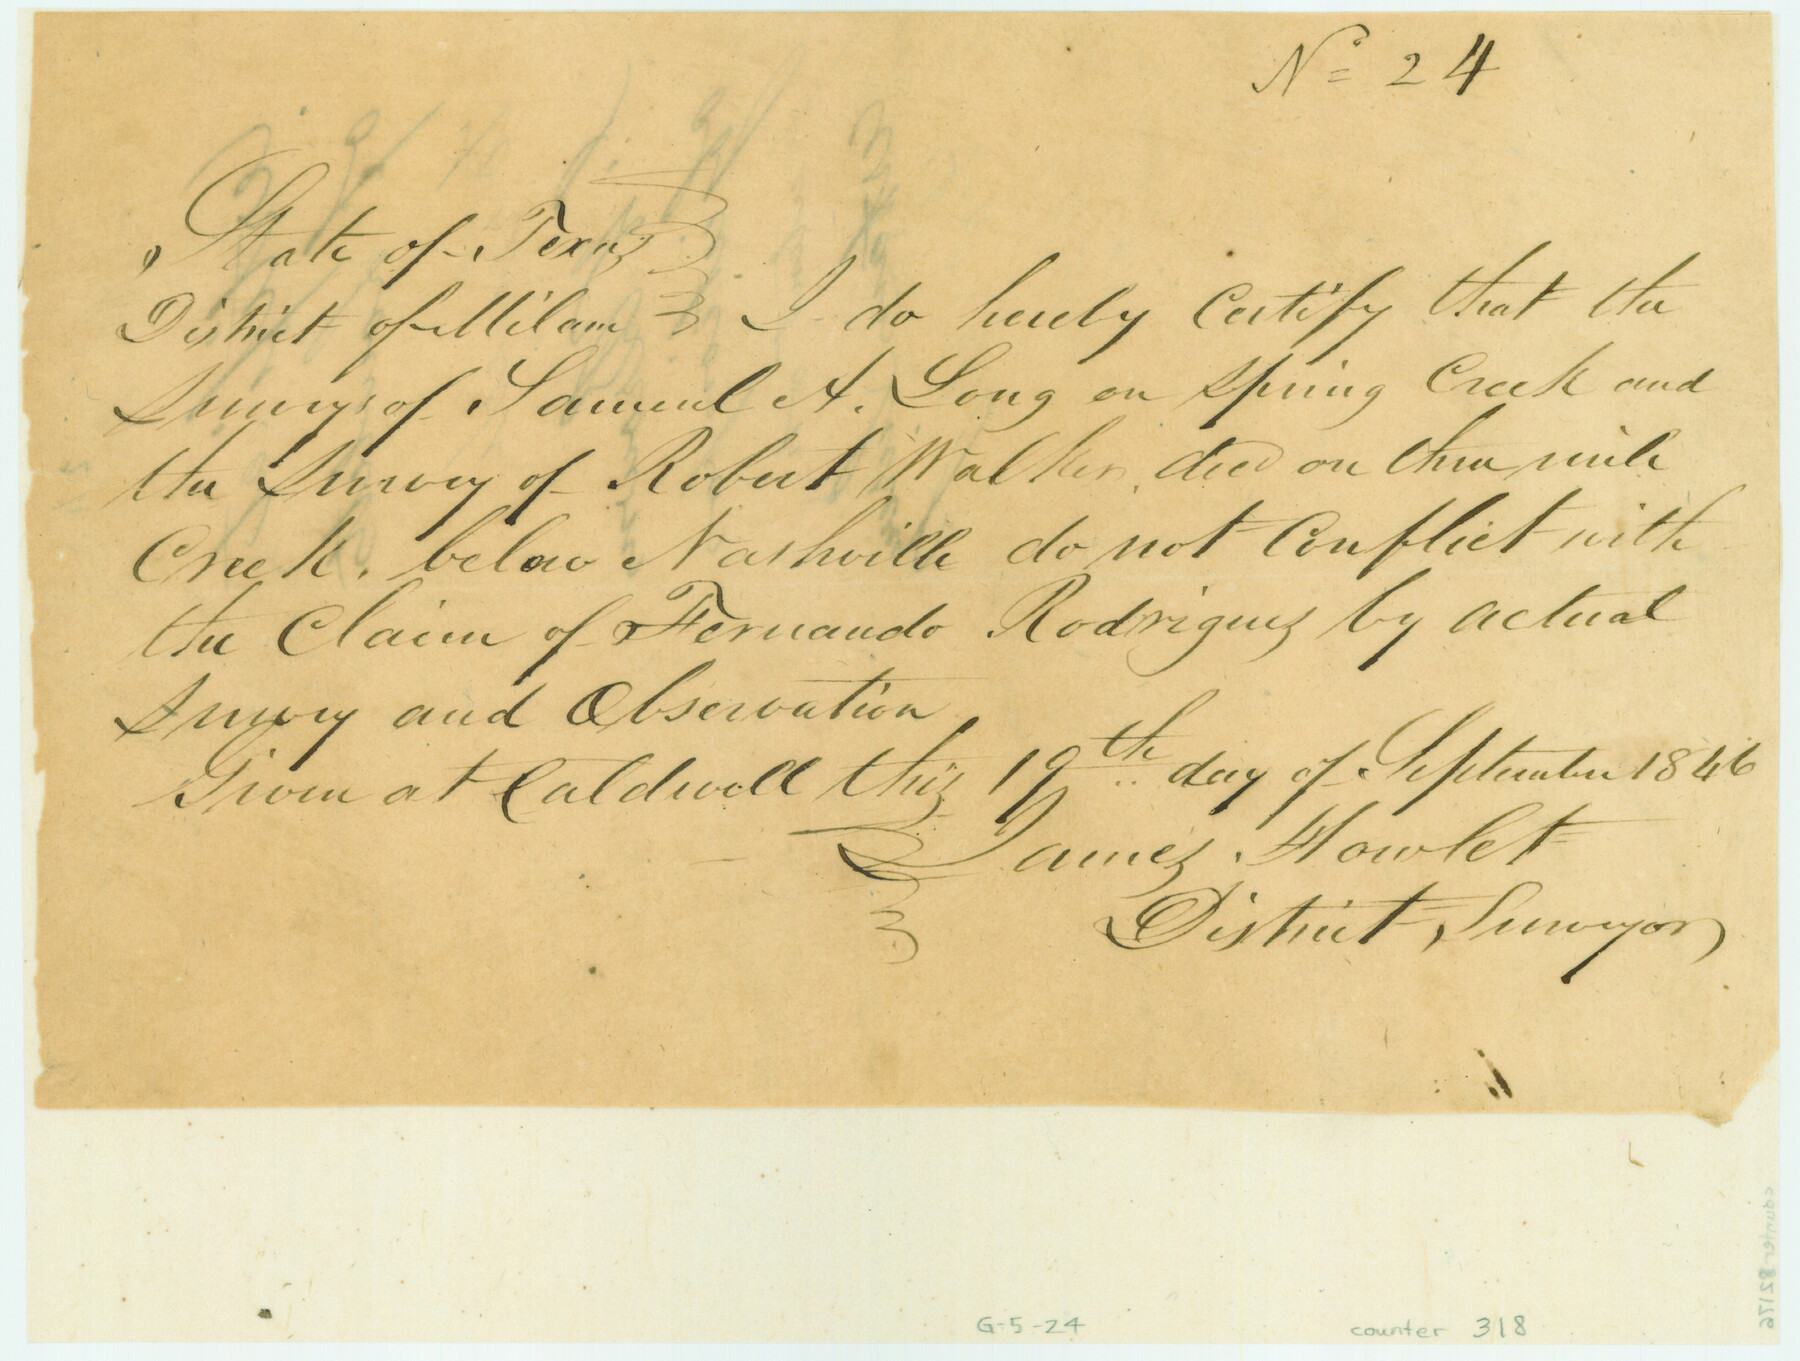 No 24
State of Texas
District of Milam I do hereby Certify that the
Surveys of Samuel A. Long on Spring Creek and
the Survey of Robert Walker, decd on three mile
Creek, below Nashville do not Conflict with
the Claim of Fernando Rodriguez by actual
Survey and Observation
Given at Caldwell this 19th day of September 1846
James Howlet
District Surveyor
G-5-24
counter 318
counter 82176